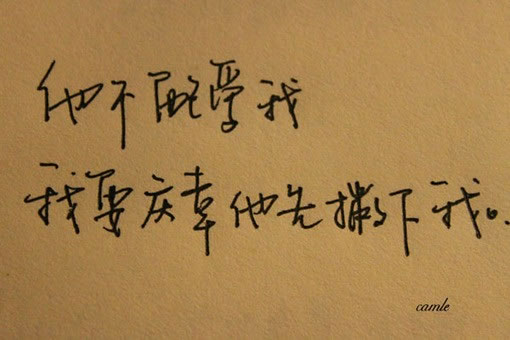 他不配爱我
我要庆幸他先撇下我。
camle